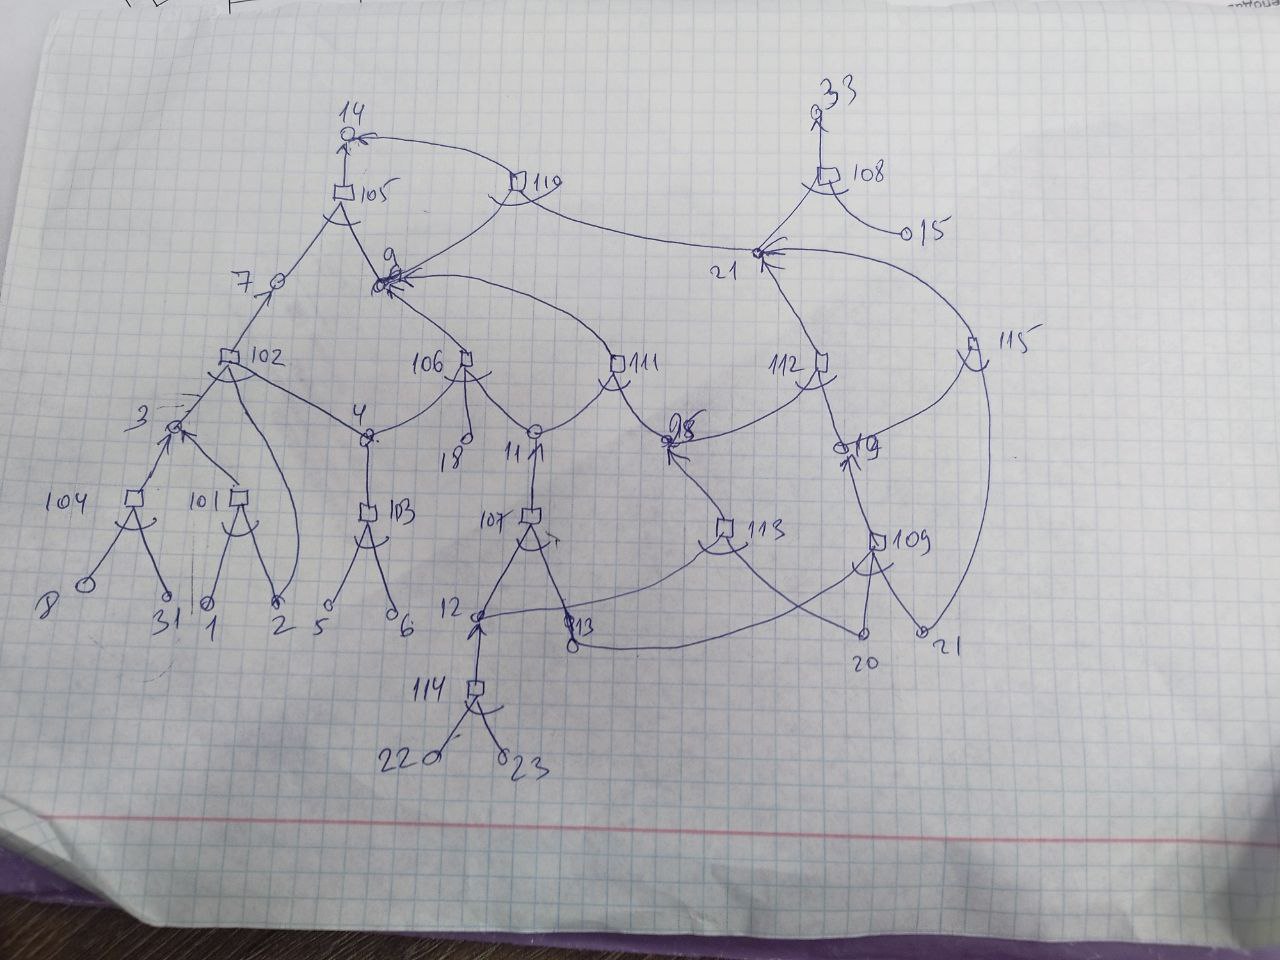 33
14
108
105
110
15
9
21
7
115
102
106
111
112
3
4
18
11
19
104
101
103
107
113
109
8
31
1
2
5
6
12
13
20
21
114
22
23